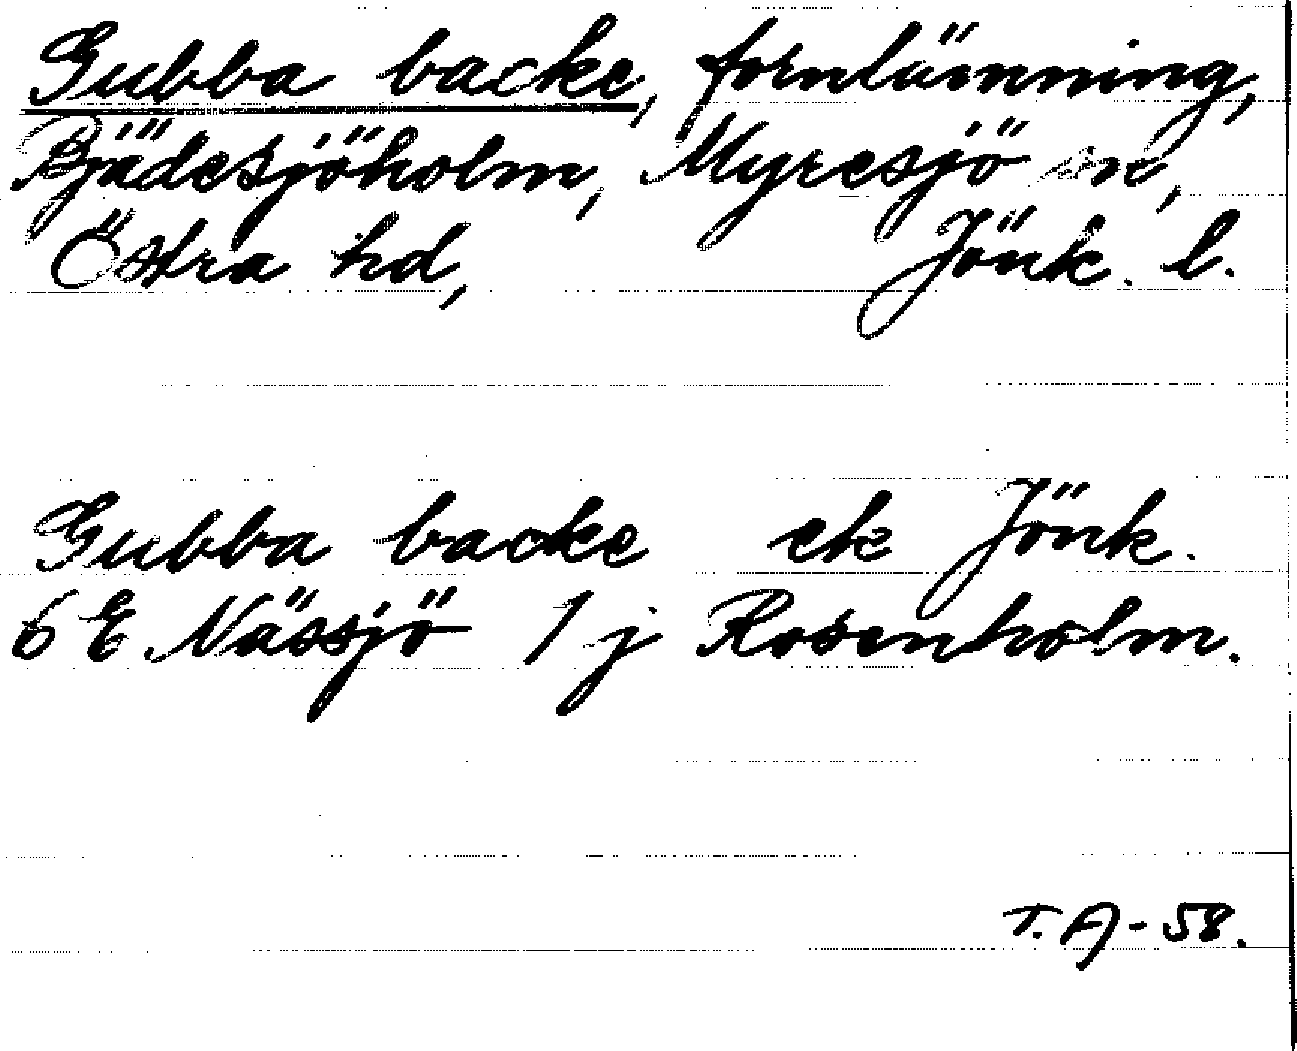 Gubba backe, fornlämning,
Bjädesjöholm, Myresjö sn,
Östra hd, Jönk. l.
Gubba backe ek Jönk.
6 E Nässjö 1 j Rosenholm.
T. A - 58.